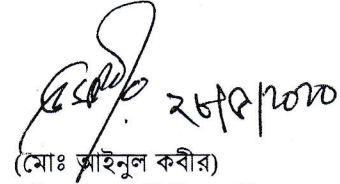 ২৮/৫/২০২০
(মোঃ আইনুল কবীর)